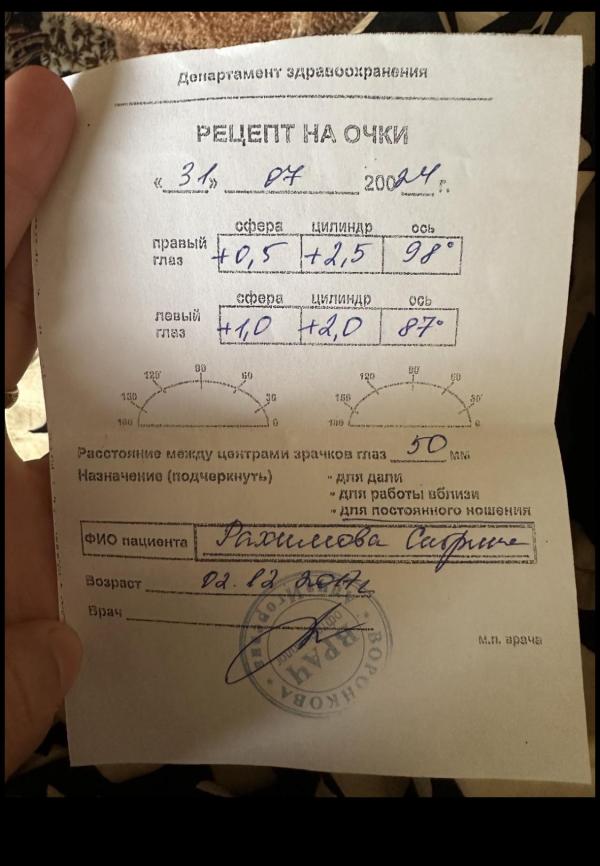 Департамент здравоохранения
РЕЦЕПТ НА ОЧКИ
« 31 » 07 20024 г.
сфера цилиндр ось
правый глаз +0,5 +2,5 98°
сфера цилиндр ось
левый глаз +1,0 +2,0 87°
120 90 60 120 90 60
150 30 150 30
180 0 180 0
Расстояние между центрами зрачков глаз 50 мм
Назначение (подчеркнуть) - для дали
- для работы вблизи
- для постоянного ношения
ФИО пациента Рахимова Сабрина
Возраст 02.12 2017г
Врач
м.п. врача
ВОРОНКОВА
ВРАЧ